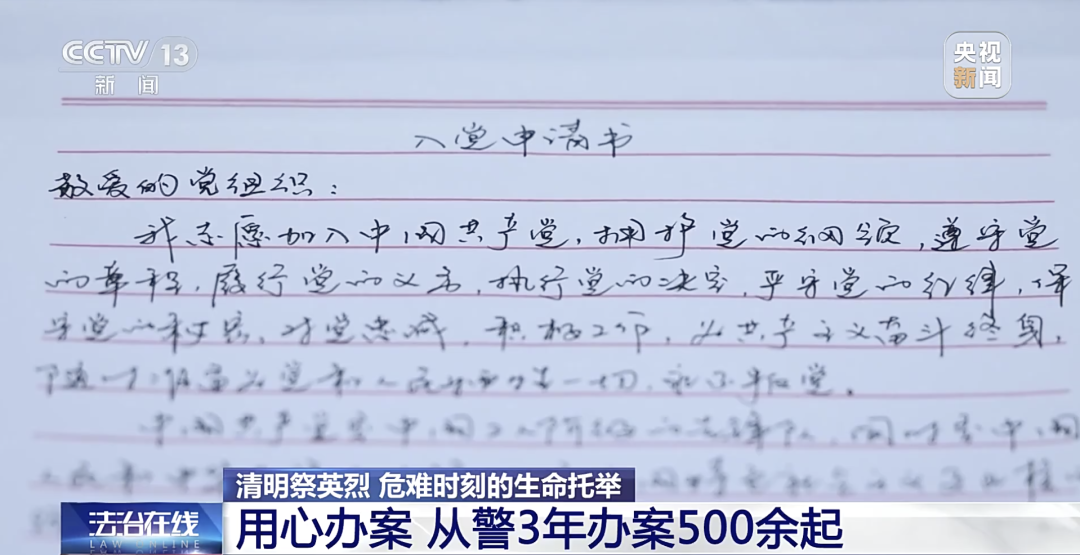 CCTV 13
新闻
央视
新闻
入党申请书
敬爱的党组织:
我志愿加入中国共产党,拥护党的纲领,遵守党
的章程,履行党的义务,执行党的决定,严守党的纪律,保
守党的秘密,对党忠诚,积极工作,为共产主义奋斗终身,
随时准备为党和人民牺牲一切,永不叛党。
中国共产党是中国工人阶级的先锋队,同时是中国
清明祭英烈 危难时刻的生命托举
法治在线
LAW ONLINE
用心办案 从警3年办案500余起